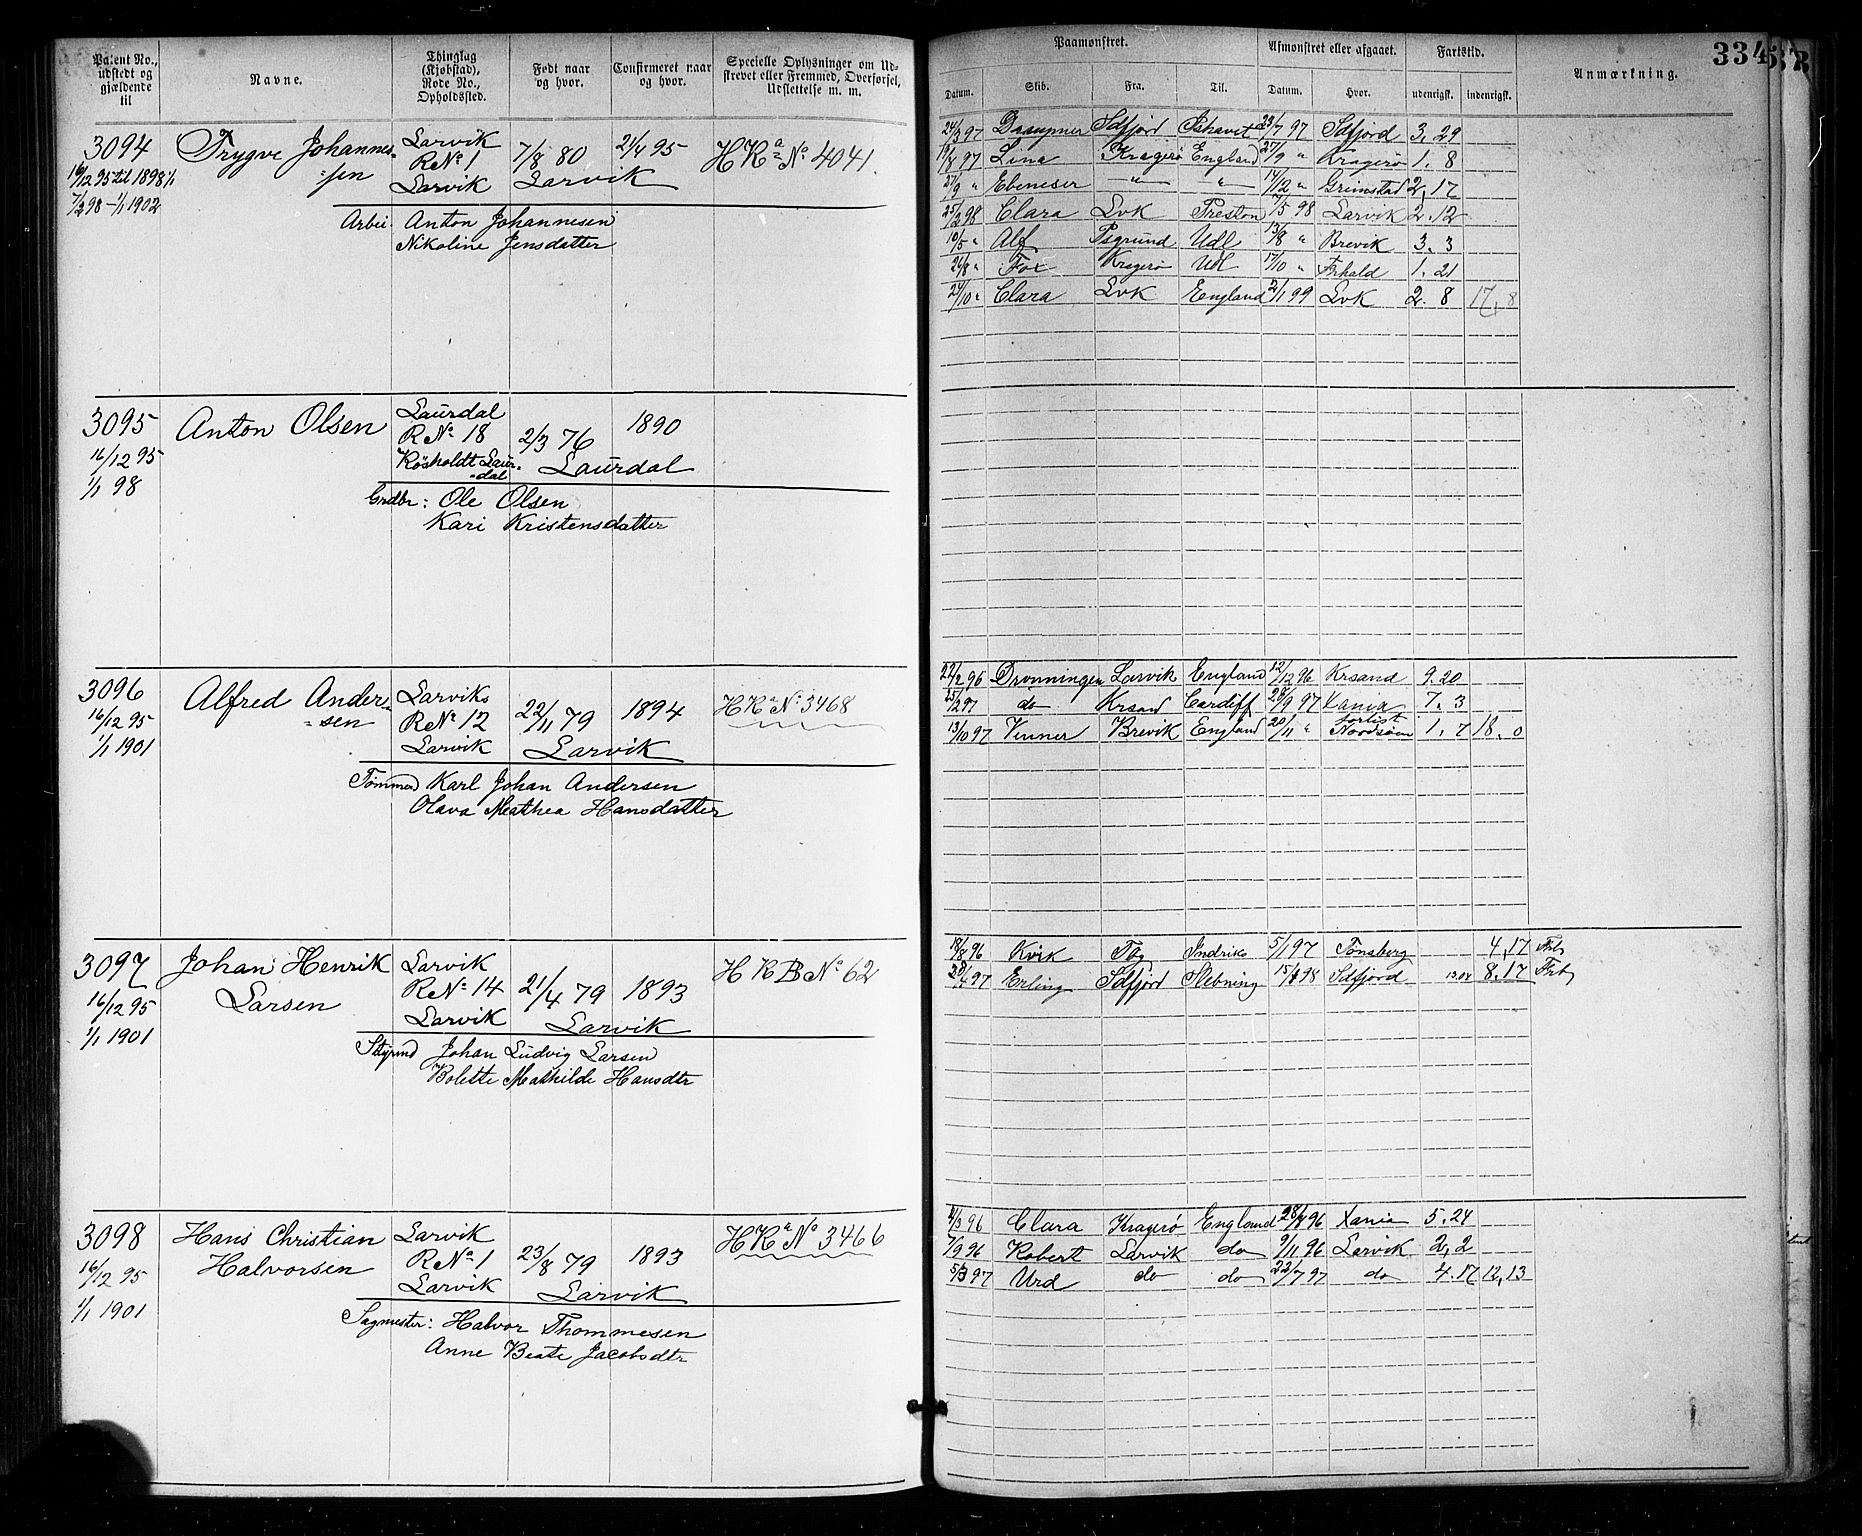 Patent No., udstedt og gjældende til
Navne.
Thinglag (Kjøbstad), Rode No., Opholdssted.
Født naar og hvor.
Confirmeret naar og hvor.
Specielle Oplysninger om Udskrevet eller Fremmed, Overførsel, Udslettelse m. m.
3094
16/12 95 til 1898 1/1
7/2 98 - 1/1 1902
Trygve Johannes-
sen
Larvik
R No 1
Larvik
7/8 80
21/4 95
Larvik
H K a No 4041.
Arbei. Anton Johannesen
Nikoline Jensdatter
3095
16/12 95
1/1 98
Anton Olsen
Laurdal
R No 18
Kösholdt Laur-
dal
2/3 76
1890
Laurdal
Grdbr: Ole Olsen
Kari Kristensdatter
3096
16/12 95
1/1 1901
Alfred Ander-
sen
Larviks
R No 12
Larvik
22/11 79
1894
Larvik
H K a No 3468
Tømmerd Karl Johan Andersen
Olava Mathea Hansdatter
3097
16/12 95
1/1 1901
Johan Henrik
Larsen
Larvik
R No 14
Larvik
21/4 79
1893
Larvik
H K B No 62
Styrmd Johan Ludvig Larsen
Bolette Mathilde Hansdtr
3098
16/12 95
1/1 1901
Hans Christian
Halvorsen
Larvik
R No 1
Larvik
23/8 79
1893
Larvik
H K a No 3466
Sagmester: Halvor Thommesen
Anne Beate Jacobsdtr
334
Paamønstret.
Afmønstret eller afgaaet.
Fartstid.
Anmærkning.
Datum. Skib. Fra. Til. Datum. Hvor. udenrigsk. indenrigsk.
24/3 97 Draupner Sdfjord Ishavet 23/7 97 Sdfjord 3. 29
19/8 97 Lina Kragerø England 27/9 " Kragerø 1. 8
27/9 " Ebeneser " " 14/12 " Grimstad 2. 17
25/2 98 Clara Lvk Preston 7/5 98 Larvik 2. 12
10/5 " Alf Psgrund Udl 13/8 " Brevik 3. 3
26/8 " Fox Kragerø Udl 17/10 " Frhald 1. 21
24/10 " Clara Lvk England 2/1 99 Lvk 2. 8 17, 8
22/2 96 Dronningen Larvik England 12/12 96 Krsand 9. 20
25/2 97 do Krsand Cardiff 28/9 97 Xania 7. 3
13/10 97 Venner Brevik England 20/11 " forlist Nordsøen 1. 7 18. 0
18/8 96 Kvik Tbg Indriks 5/1 97 Tønsberg 4, 17 Frb
28/4 97 Erling Sdfjord Slebning 15/1 98 Sdfjord 8. 17 Frb
4/3 96 Clara Kragerø England 28/8 96 Xania 5. 24
7/9 96 Robert Larvik do 9/11 96 Larvik 2, 2
5/3 97 Urd do do 22/7 97 do 4. 17 12, 13